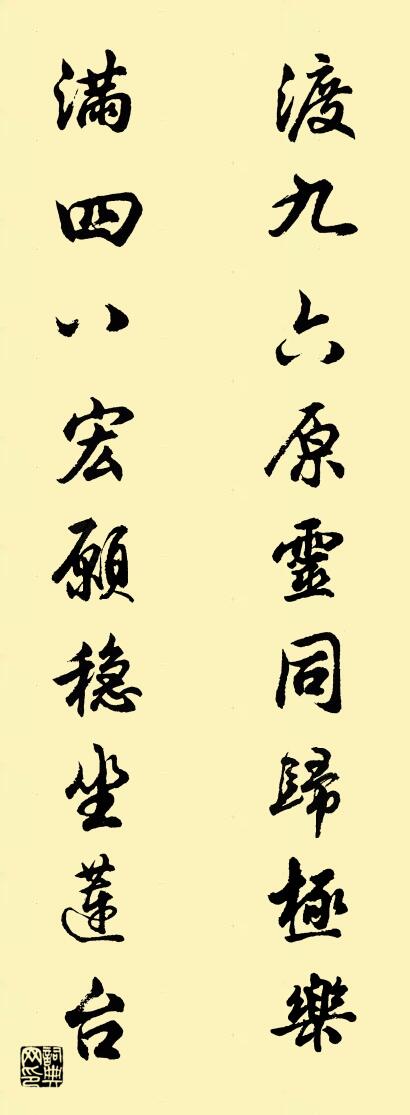 渡九六原靈同歸極樂
滿四八宏願穩坐蓮台
詞典网印